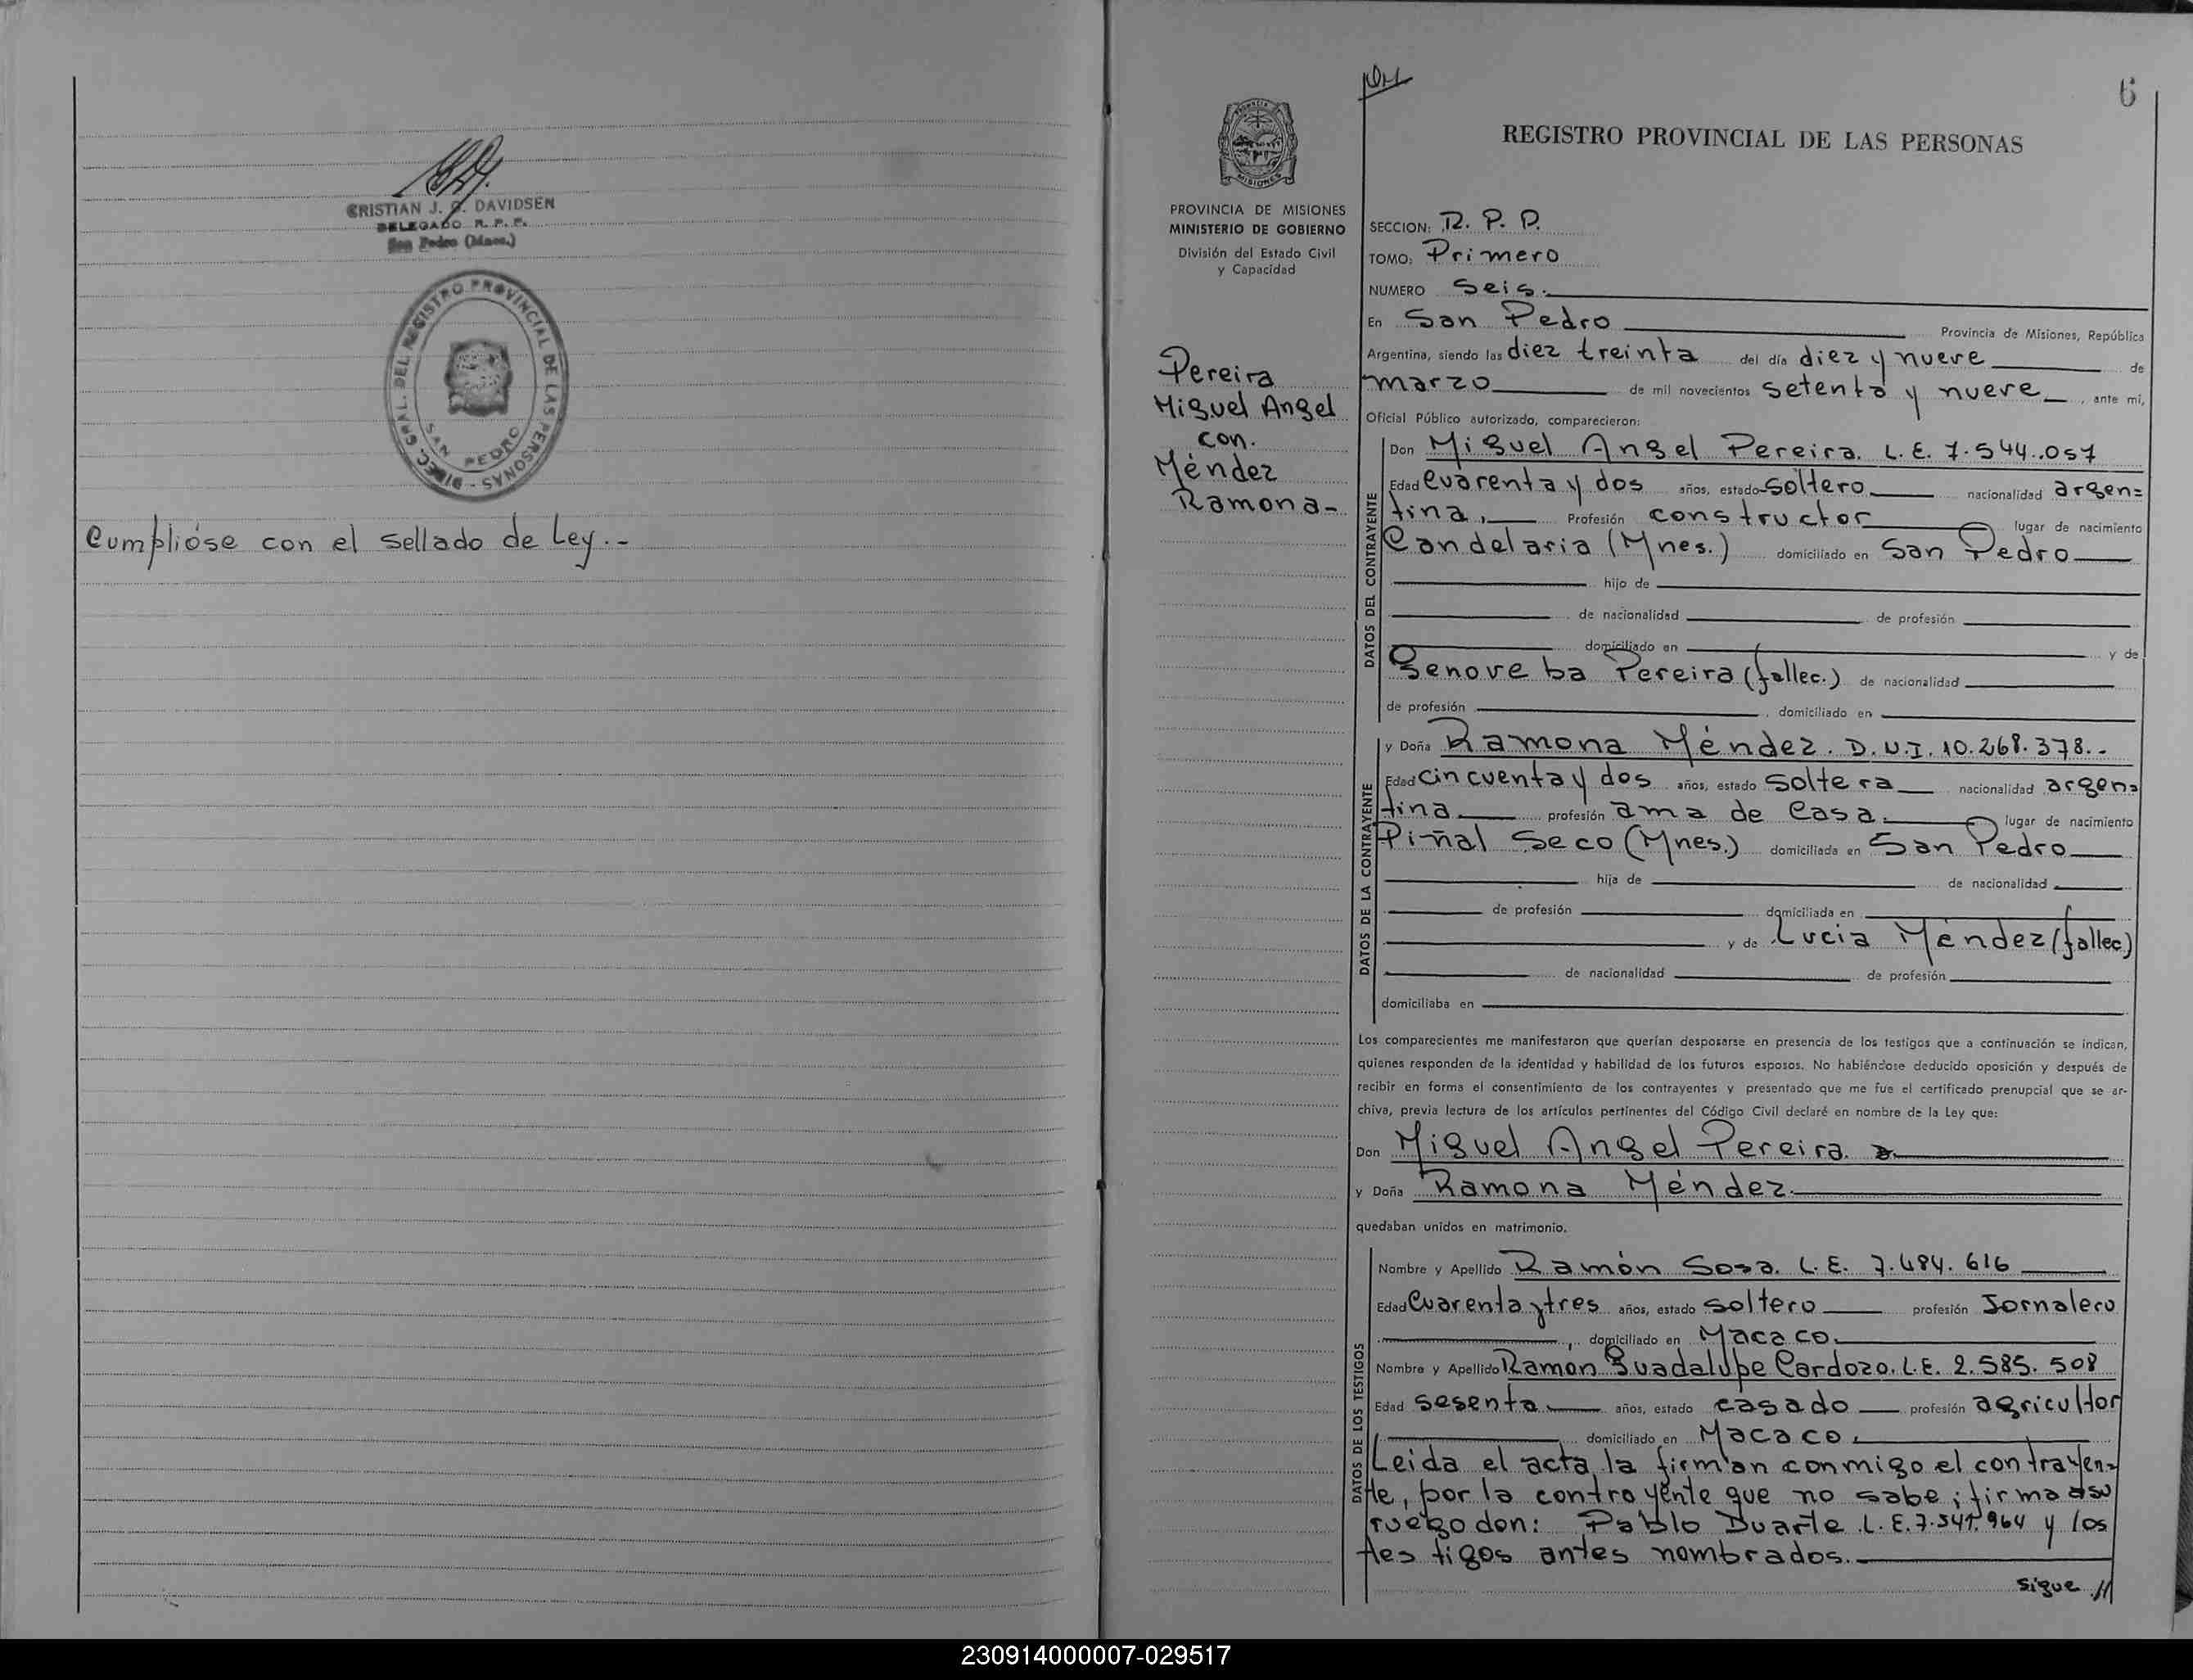 CRISTIAN J. G. DAVIDSEN
DELEGADO R. P. P.
San Pedro (Mnes.)
DIREC. GRAL. DEL REGISTRO PROVINCIAL DE LAS PERSONAS
SAN PEDRO
Cumplióse con el sellado de Ley.-
6
REGISTRO PROVINCIAL DE LAS PERSONAS
PROVINCIA
MISIONES
PROVINCIA DE MISIONES
MINISTERIO DE GOBIERNO
División del Estado Civil
y Capacidad
Pereira
Miguel Angel
con.
Méndez
Ramona-
SECCION: R. P. P.
TOMO: Primero
NUMERO Seis.
En San Pedro Provincia de Misiones, República
Argentina, siendo las diez treinta del día diez y nueve de
marzo de mil novecientos setenta y nueve, ante mí,
Oficial Público autorizado, comparecieron:
DATOS DEL CONTRAYENTE
Don Miguel Angel Pereira. L.E. 7.544.057
Edad Cuarenta y dos años, estado soltero nacionalidad argen=
tina, Profesión constructor lugar de nacimiento
Candelaria (Mnes.) domiciliado en San Pedro
hijo de
de nacionalidad de profesión
domiciliado en y de
Genoveba Pereira (fallec.) de nacionalidad
de profesión , domiciliado en
DATOS DE LA CONTRAYENTE
y Doña Ramona Méndez. D.N.I. 10.268.378.-
Edad Cincuenta y dos años, estado soltera nacionalidad argen=
tina profesión ama de Casa. lugar de nacimiento
Piñal Seco (Mnes.) domiciliada en San Pedro
hija de de nacionalidad
de profesión domiciliada en
y de Lucia Méndez (fallec.)
de nacionalidad de profesión
domiciliaba en
Los comparecientes me manifestaron que querían desposarse en presencia de los testigos que a continuación se indican,
quienes responden de la identidad y habilidad de los futuros esposos. No habiéndose deducido oposición y después de
recibir en forma el consentimiento de los contrayentes y presentado que me fue el certificado prenupcial que se ar-
chiva, previa lectura de los artículos pertinentes del Código Civil declaré en nombre de la Ley que:
Don Miguel Angel Pereira
y Doña Ramona Méndez.
quedaban unidos en matrimonio.
DATOS DE LOS TESTIGOS
Nombre y Apellido Ramón Sosa. L.E. 7.484.616
Edad Cuarenta y tres años, estado soltero profesión Jornalero
domiciliado en Macaco.
Nombre y Apellido Ramon Guadalupe Cardozo. L.E. 2.585.508
Edad sesenta años, estado casado profesión agricultor
domiciliado en Macaco.
Leida el acta la firman conmigo el contrayen=
te, por la contrayente que no sabe; firma a su
ruego don: Pablo Duarte L.E. 7.541.964 y los
testigos antes nombrados.
Sigue //
230914000007-029517